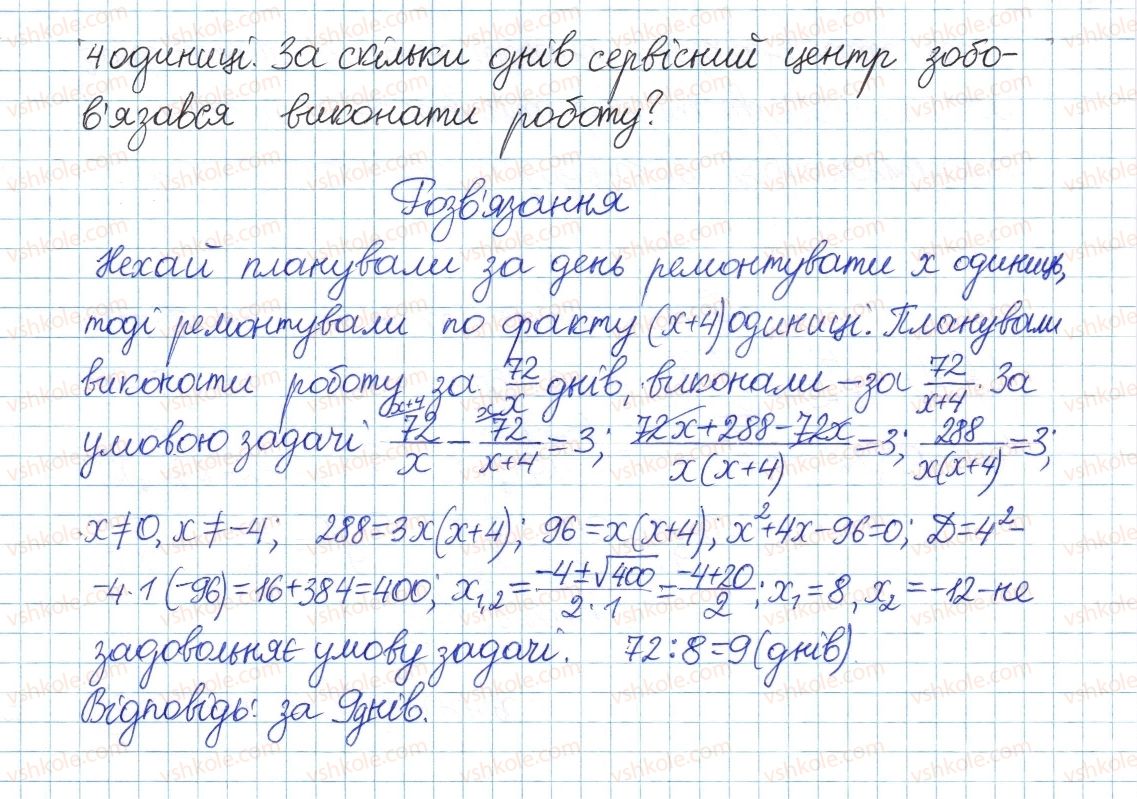 4 одиниці. За скільки днів сервісний центр зобо-
в'язався виконати роботу?
Розв'язання
Нехай планували за день ремонтувати x одиниць,
тоді ремонтували по факту (x+4) одиниці. Планували
виконати роботу за 72/x днів, виконали – за 72/(x+4). За
умовою задачі 72/x – 72/(x+4) = 3; (72x+288–72x)/(x(x+4)) = 3; 288/(x(x+4)) = 3;
x≠0, x≠–4; 288=3x(x+4); 96=x(x+4); x²+4x–96=0; D=4²–
–4·1(–96)=16+384=400; x₁,₂=(–4±√400)/(2·1)=(–4±20)/2; x₁=8, x₂=–12–не
задовольняє умову задачі. 72:8=9(днів)
Відповідь: за 9днів.
vshkole.com